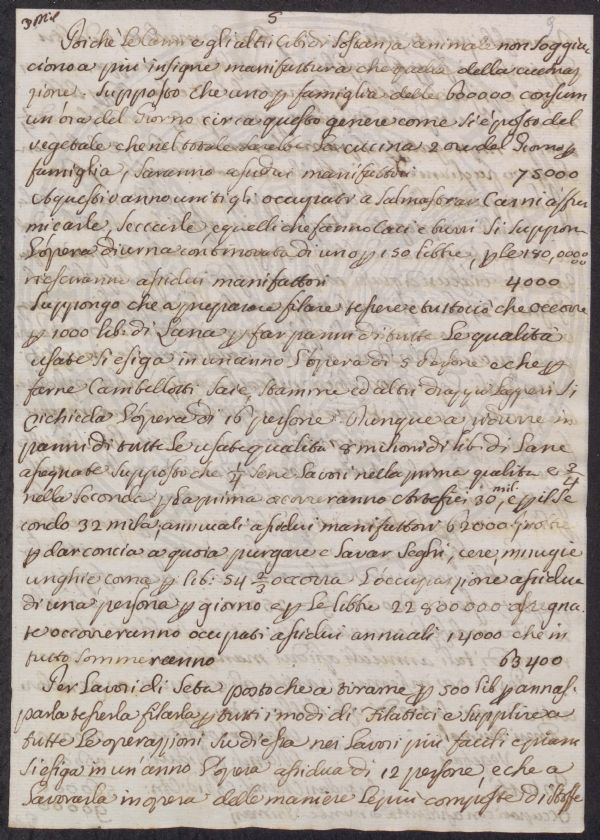 3 Mil
5
Poichè le Carni e gli altri Cibi di Sostanza animale non soggia
ciono a più insigne manifattura che quella della cucina
zione. Supposto che uno p famiglia delle 600000 consum
un'ora del Giorno circa questo genere come si è posto del
vegetale che nel totale sarebbe la cucina 2 ore del Giorno p
famiglia, saranno assidui manifattori 75000
A questi vanno uniti gli occupati a Salmastrar Carni affu
micarle, seccarle, e quelli che fanno Caci e burri Si suppon
l'opera diurna continovata di uno p 150 libbre, p le 180,0000
riesciranno assidui manifattori 4000
Suppongo che a preparare filare tessere e tutto ciò che occorre
p 1000 lib: di Lana p far panni di tutte le qualità
usate si esiga in un anno l'opera di 5 Persone e che p
farne Cambellotti, Saie, Stamine ed altri drappi leggeri si
richieda l'opera di 16 persone. Dunque a ridurre in
panni di tutte le usate qualità 8 milioni di lib: di Lane
assegnate Supposto che 3/4 sene lavori nella prima qualità e 1/4
nella seconda, p la prima occorreranno Artefici 30 mil. e p il se
condo 32 mila, annuali assidui manifattori 62000. poiche
p dar concia a quoia purgare e lavar Seghi, cere, minugie
unghie corna p lib: 54 2/3 occorra l'occupazione assidua
di una persona p giorno e p le libbre 22800000 assegna
te occorreranno occupati assidui annuali 1400 che in
tutto sommeranno 63400
Per Lavori di Seta posto che a tirarne p 500 lib p annas
parla tesserla filarla p tutti i modi di Filaticci e supplire a
tutte le operazioni su di essa nei lavori più facili e piani
si esiga in un anno l'opera assidua di 12 persone, e che a
lavorarla in opera delle maniere le più composte di stoffe